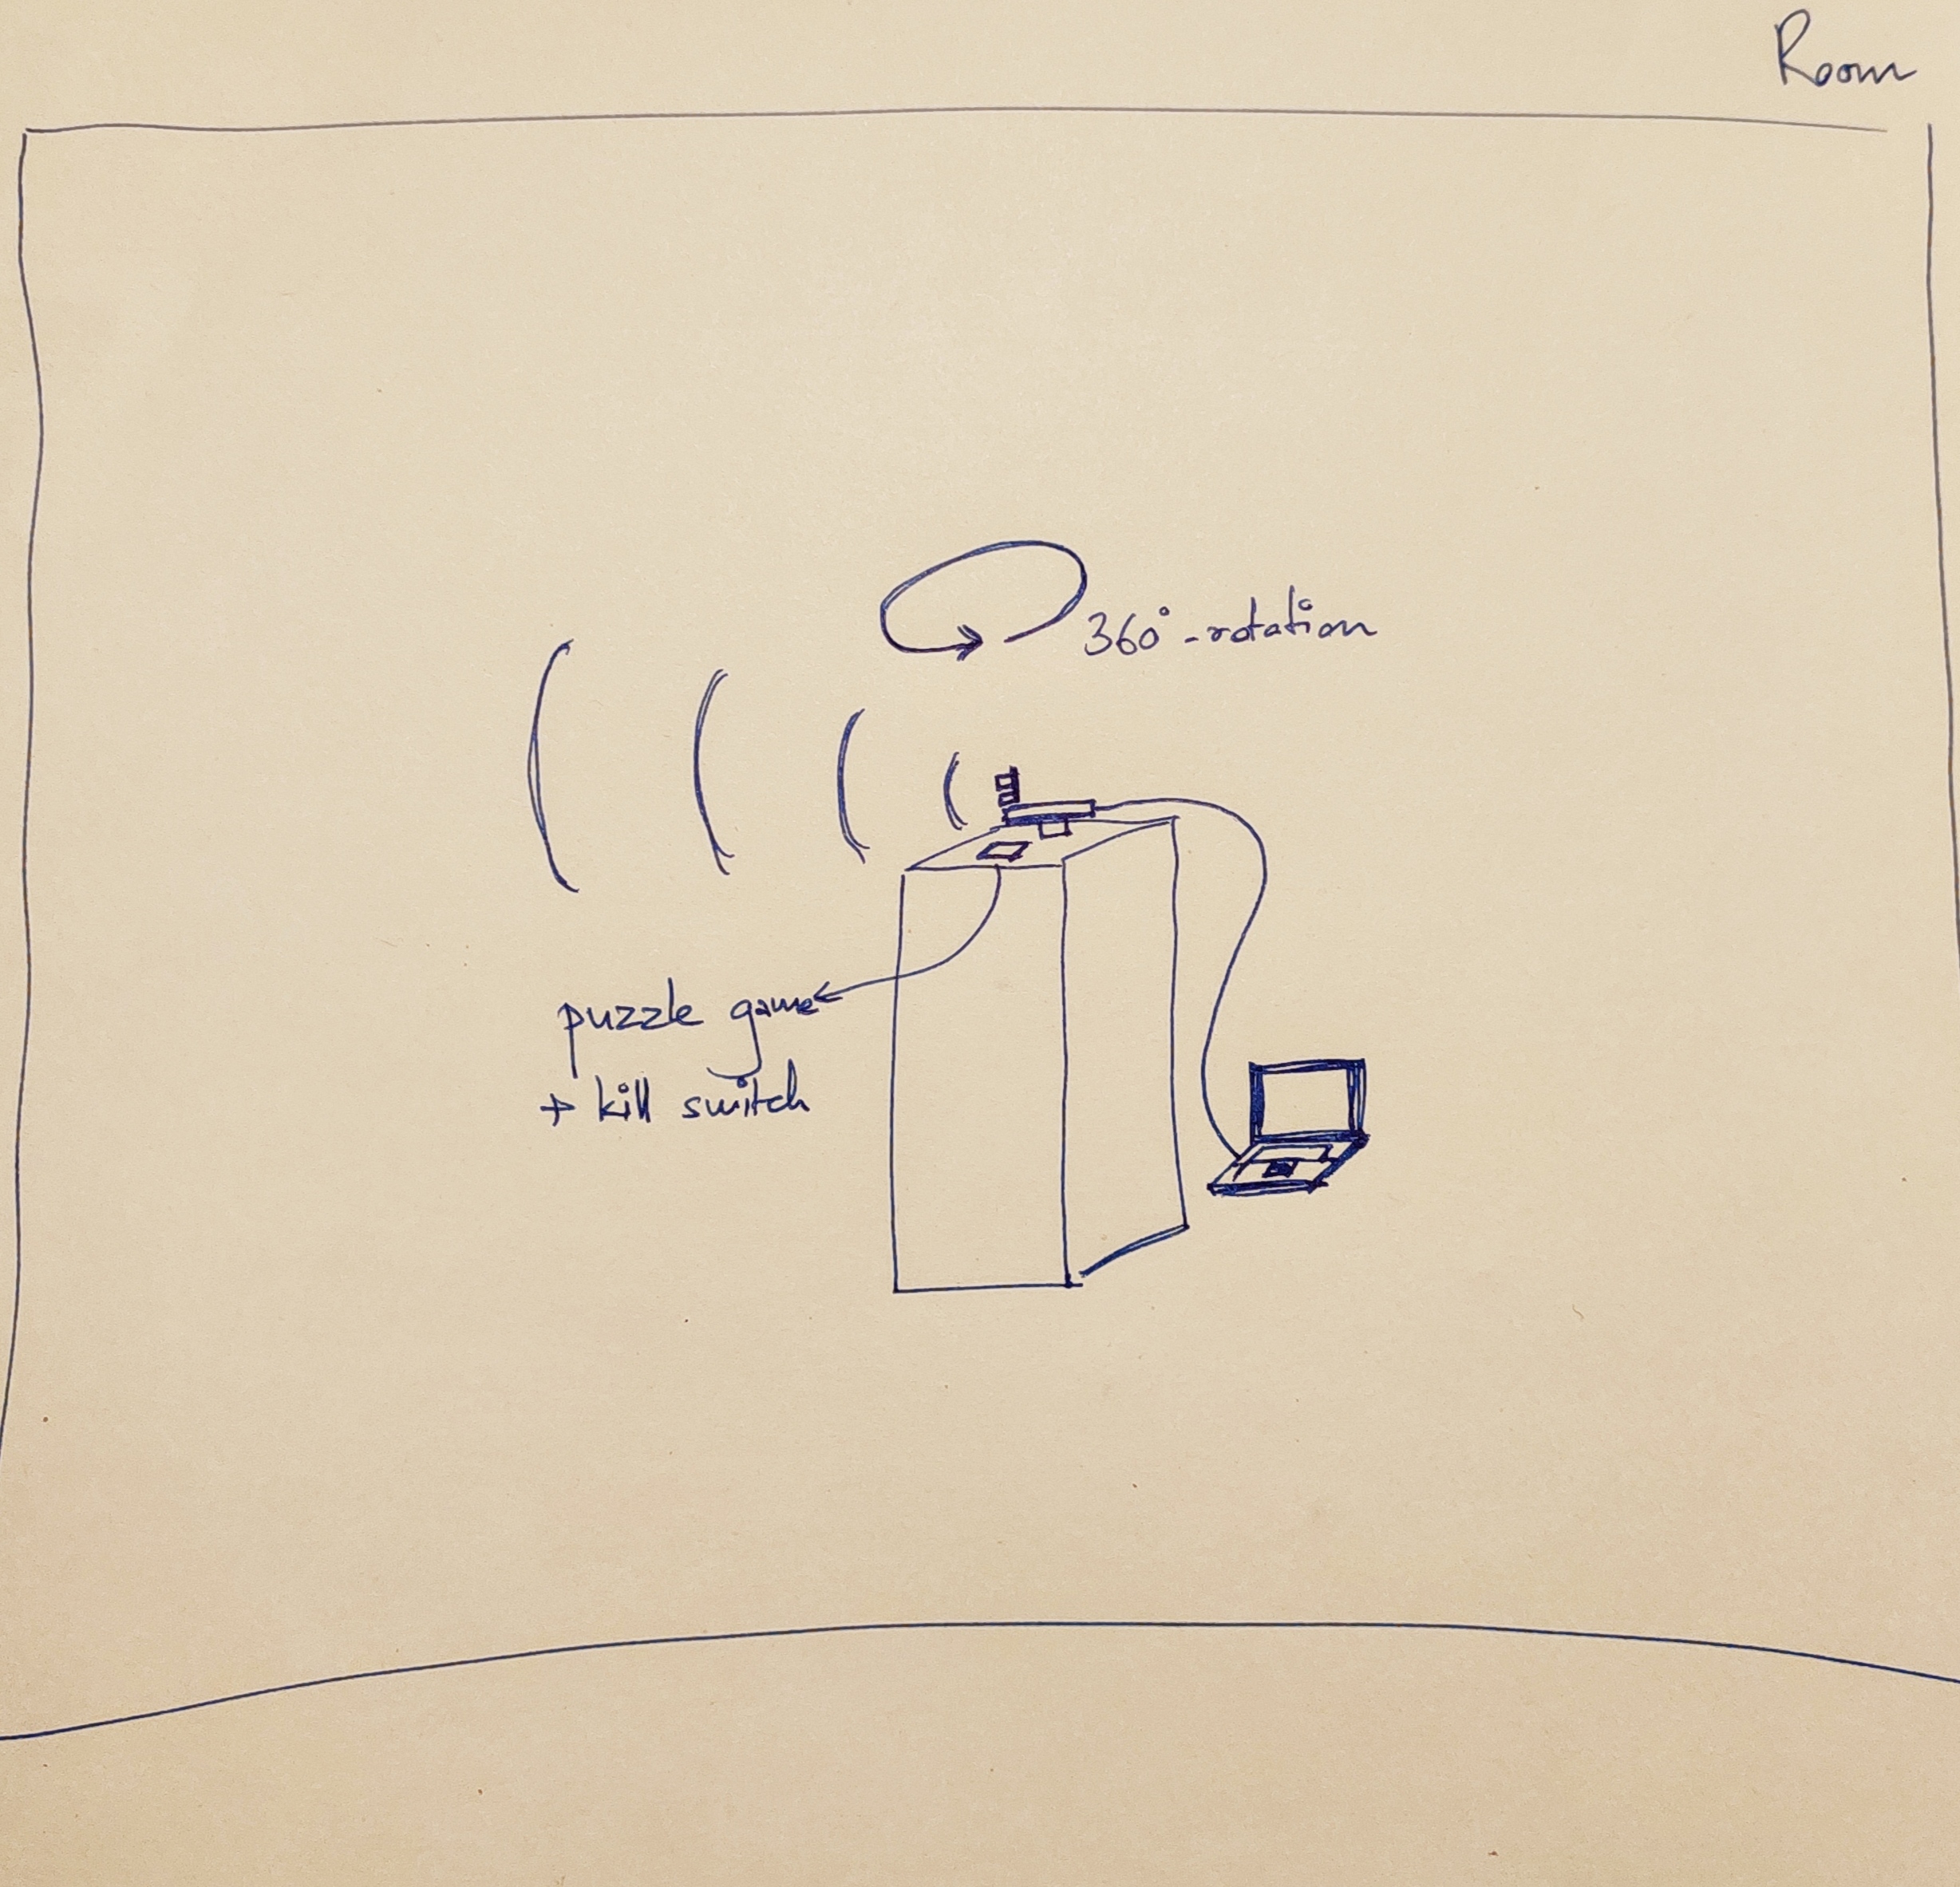 Room
360° - rotation
puzzle game
+ kill switch